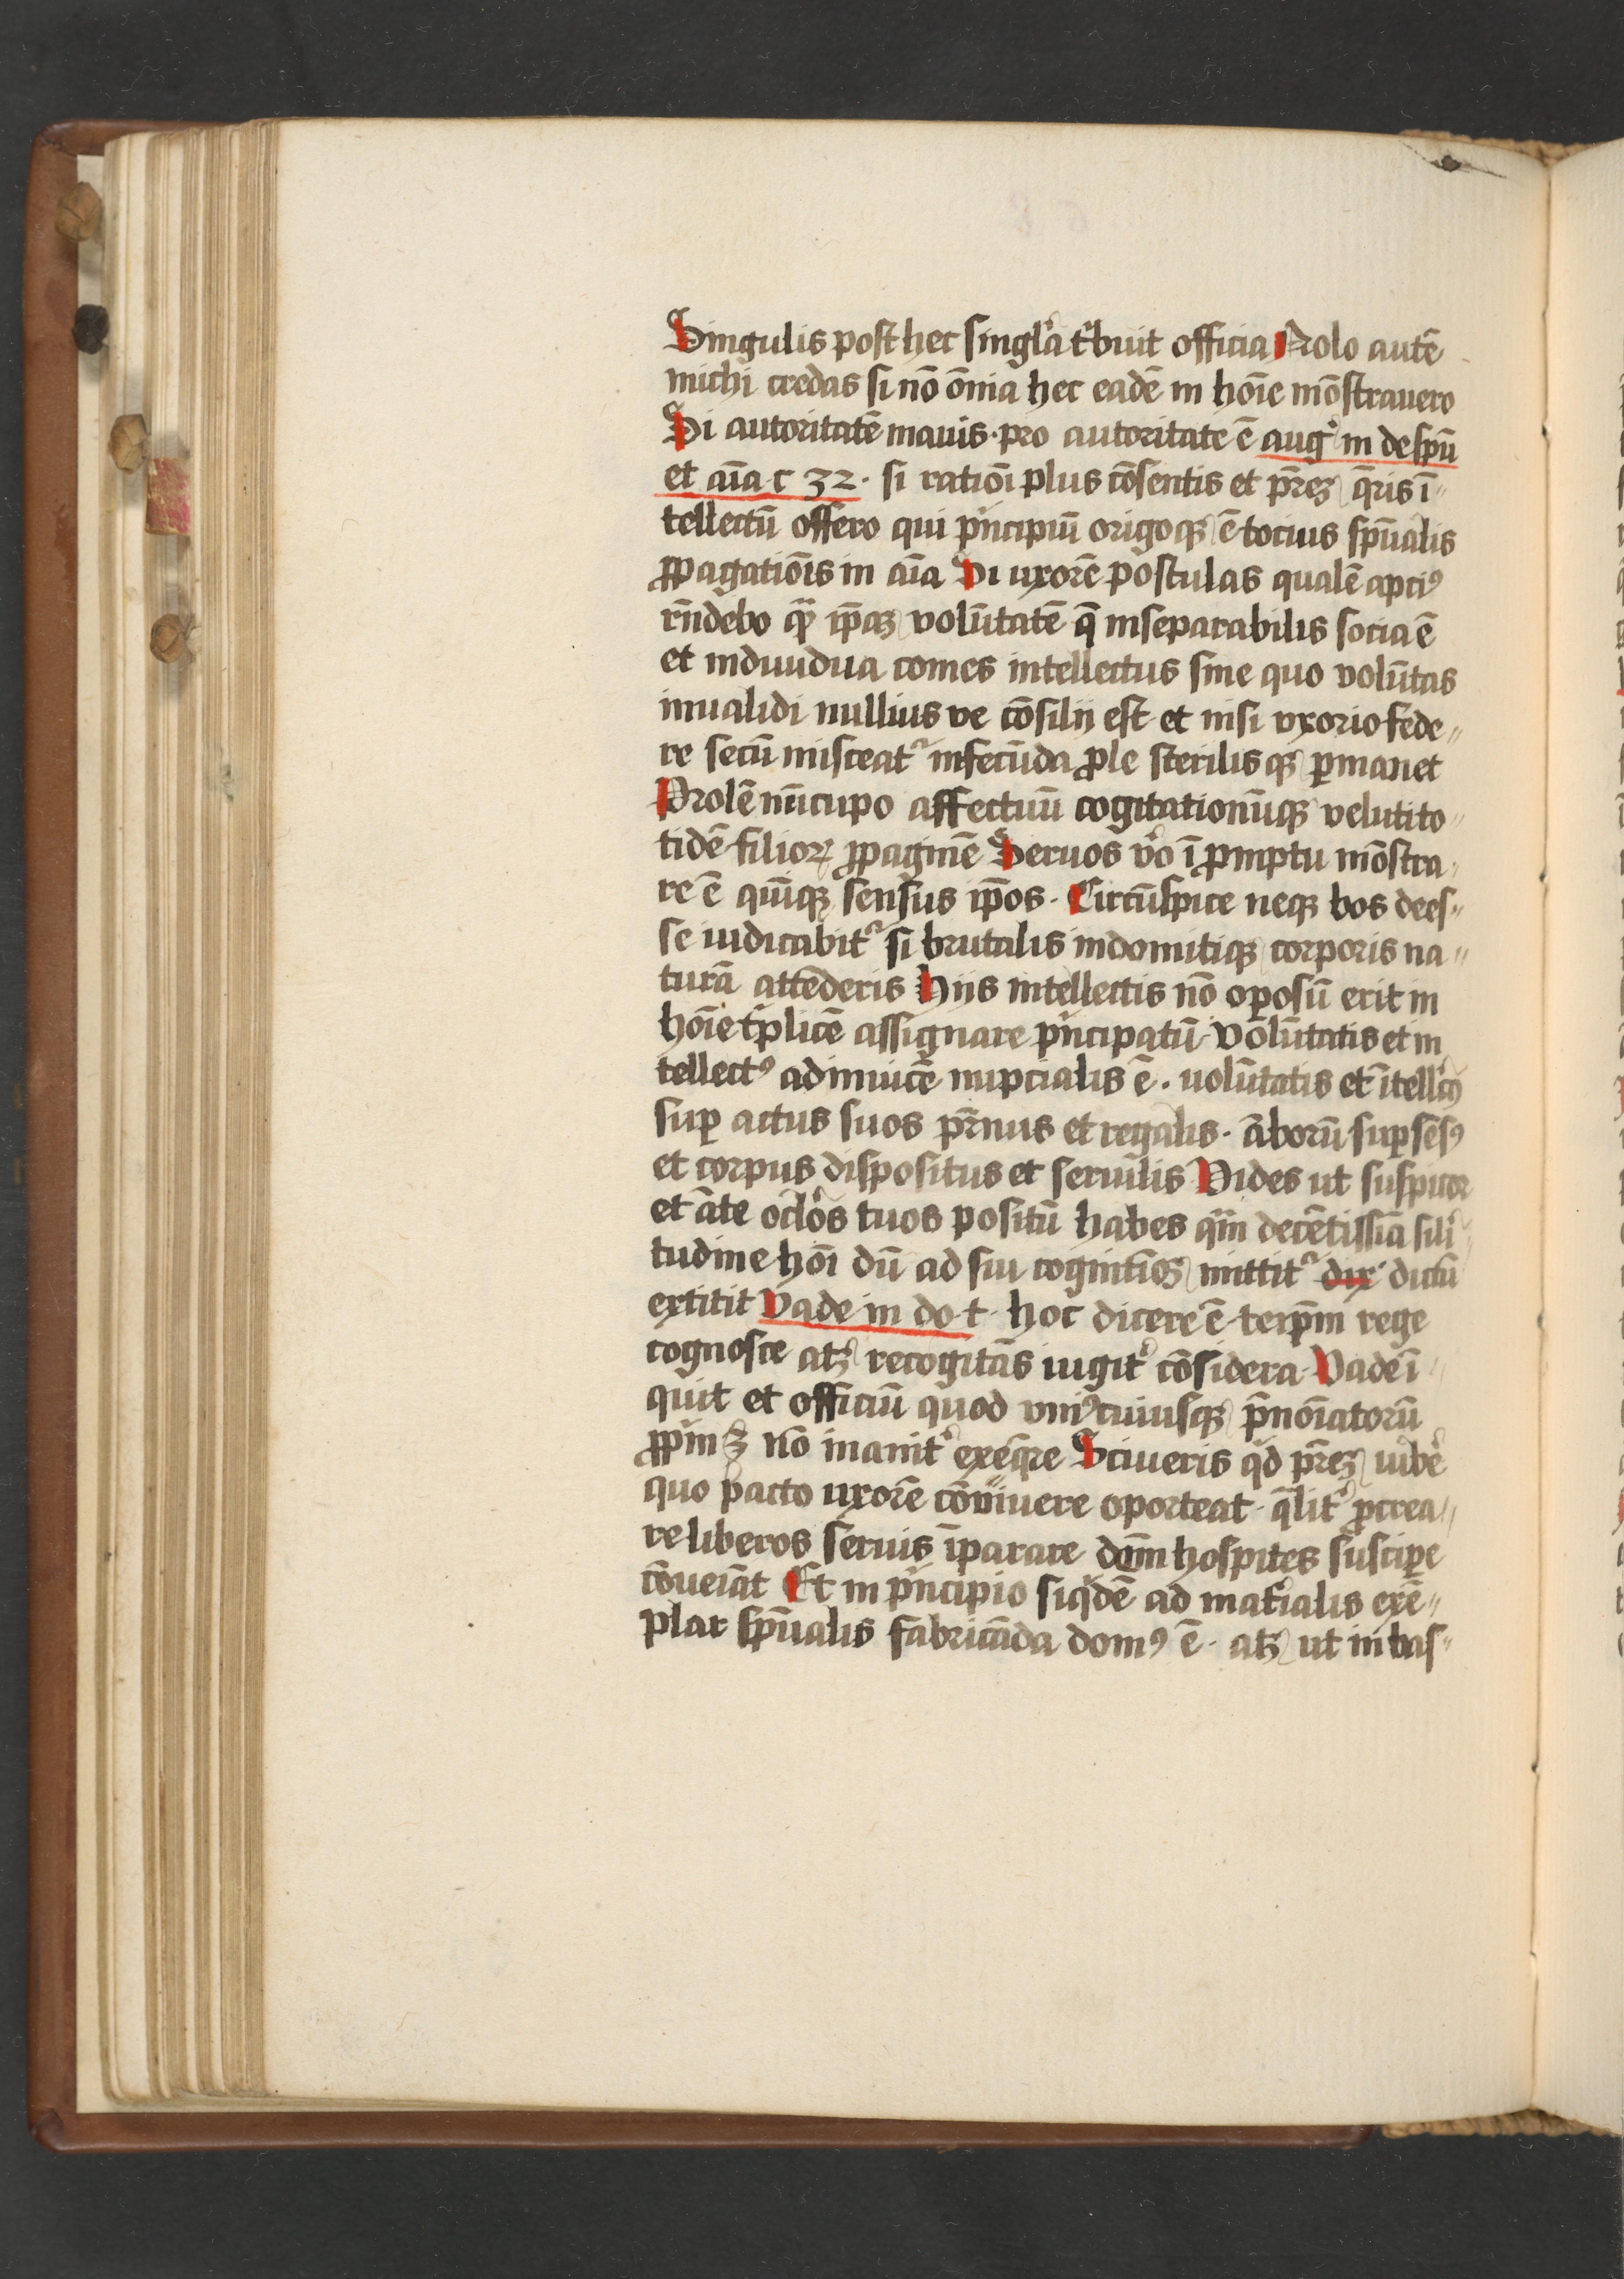 Singulis post hec singl'a t'buit officia Nolo autē
michi credas si nō ōnia hec eadē in hoīe mōstrauero
Si autoritatē mauis · pro autoritate ē aug' in de spū
et aīa c 32 · si ratiōi plus cōsentis et p̄reꝫ q̄ris ī
tellectū offero qui p'ncipiū origoqꝫ ē tocius sp̄ualis
ꝓpagatiōis in aīa Si uxorē postulas qualē apciꝰ
rn̄debo qꝫ ip̄aꝫ volūtatē q̄ inseparabilis socia ē
et indiuidua comes intellectus sine quo volūtas
inualidi nullius ve cōsilij est et nisi vxorio fede〃
re secū misceat' infecūda ꝓle sterilisqꝫ ꝑmanet
Prolē nūcupo affectuū cogitationūqꝫ veluti to〃
tidē filioꝝ ꝓpaginē Seruos v'o ī ꝓmptu mōstra〃
re ē quīqꝫ sensus ip̄os · Circūspice neqꝫ bos dees〃
se iudicabit' si brutalis indomitiqꝫ corporis na〃
turā attēderis Hijs intellectis nō oꝑosū erit in
hoīe t'plicē assignare p'ncipatū · Volūtatis et in
tellectꝰ adinuicē nupcialis ē · uolūtatis et ītell'ꝰ
suꝑ actus suos p̄rnus et regalis · āborū suꝑ sēsꝰ
et corpus dispositus et seruilis Vides ut suspicor
et āte oclōs tuos positū habes qm̄ decētissīa sili'
tudine hoī dū ad sui cognit'oēꝫ mittit' dix' dictū
extitit Vade in do · t · hoc dicere ē teip̄m rege
cognosce atqꝫ recogitās iugit' cōsidera · Vade ī
quit et officiū quod vniꝰcuiusqꝫ p̄noīatorū
ꝓp'm ꝫ nō inanit' exeq̄re Sciueris qd̄ p̄reꝫ iub'e
quo pacto uxorē cōuiuere oporteat · q̄lit' ꝓcrea〃
re liberos seruis īparare dom̄ hospites susciꝑe
cōueīat Et in p'ncipio siq'dē ad mat'ialis exē〃
plar sp̄ualis fabricāda domꝰ ē · atqꝫ ut in bas〃